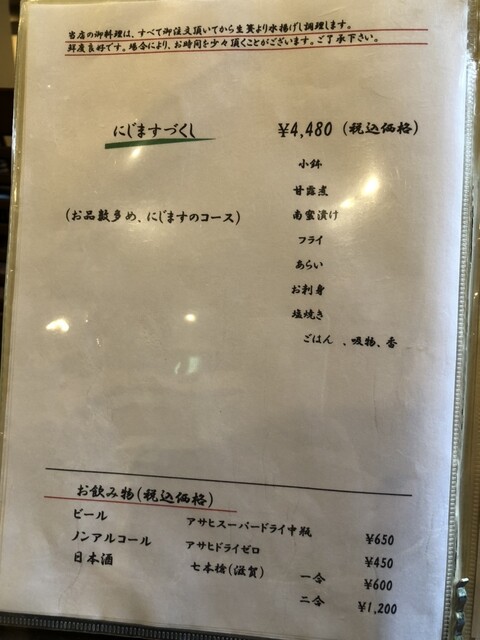 当店の御料理は、すべて御注文頂いてから生簀より水揚げし調理します。
鮮度良好です。場合により、お時間を少々頂くことがございます。ご了承下さい。
にじますづくし ¥4,480 (税込価格)
小鉢
甘露煮
(お品数多め、にじますのコース) 南蛮漬け
フライ
あらい
お刺身
塩焼き
ごはん 、吸物、香
お飲み物(税込価格)
ビール アサヒスーパードライ中瓶 ¥650
ノンアルコール アサヒドライゼロ ¥450
日本酒 七本槍(滋賀) 一合 ¥600
二合 ¥1,200